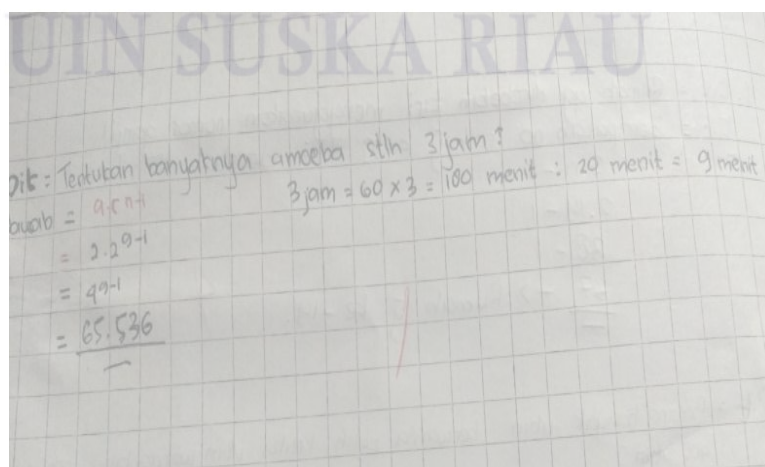 UIN SUSKA RIAU
Dit: Tentukan banyaknya amoeba stlh 3 jam?
3 jam = 60 x 3 = 180 menit : 20 menit = 9 menit
Jawab = a.r n-1
= 2.2 9-1
= 4 9-1
= 65.536